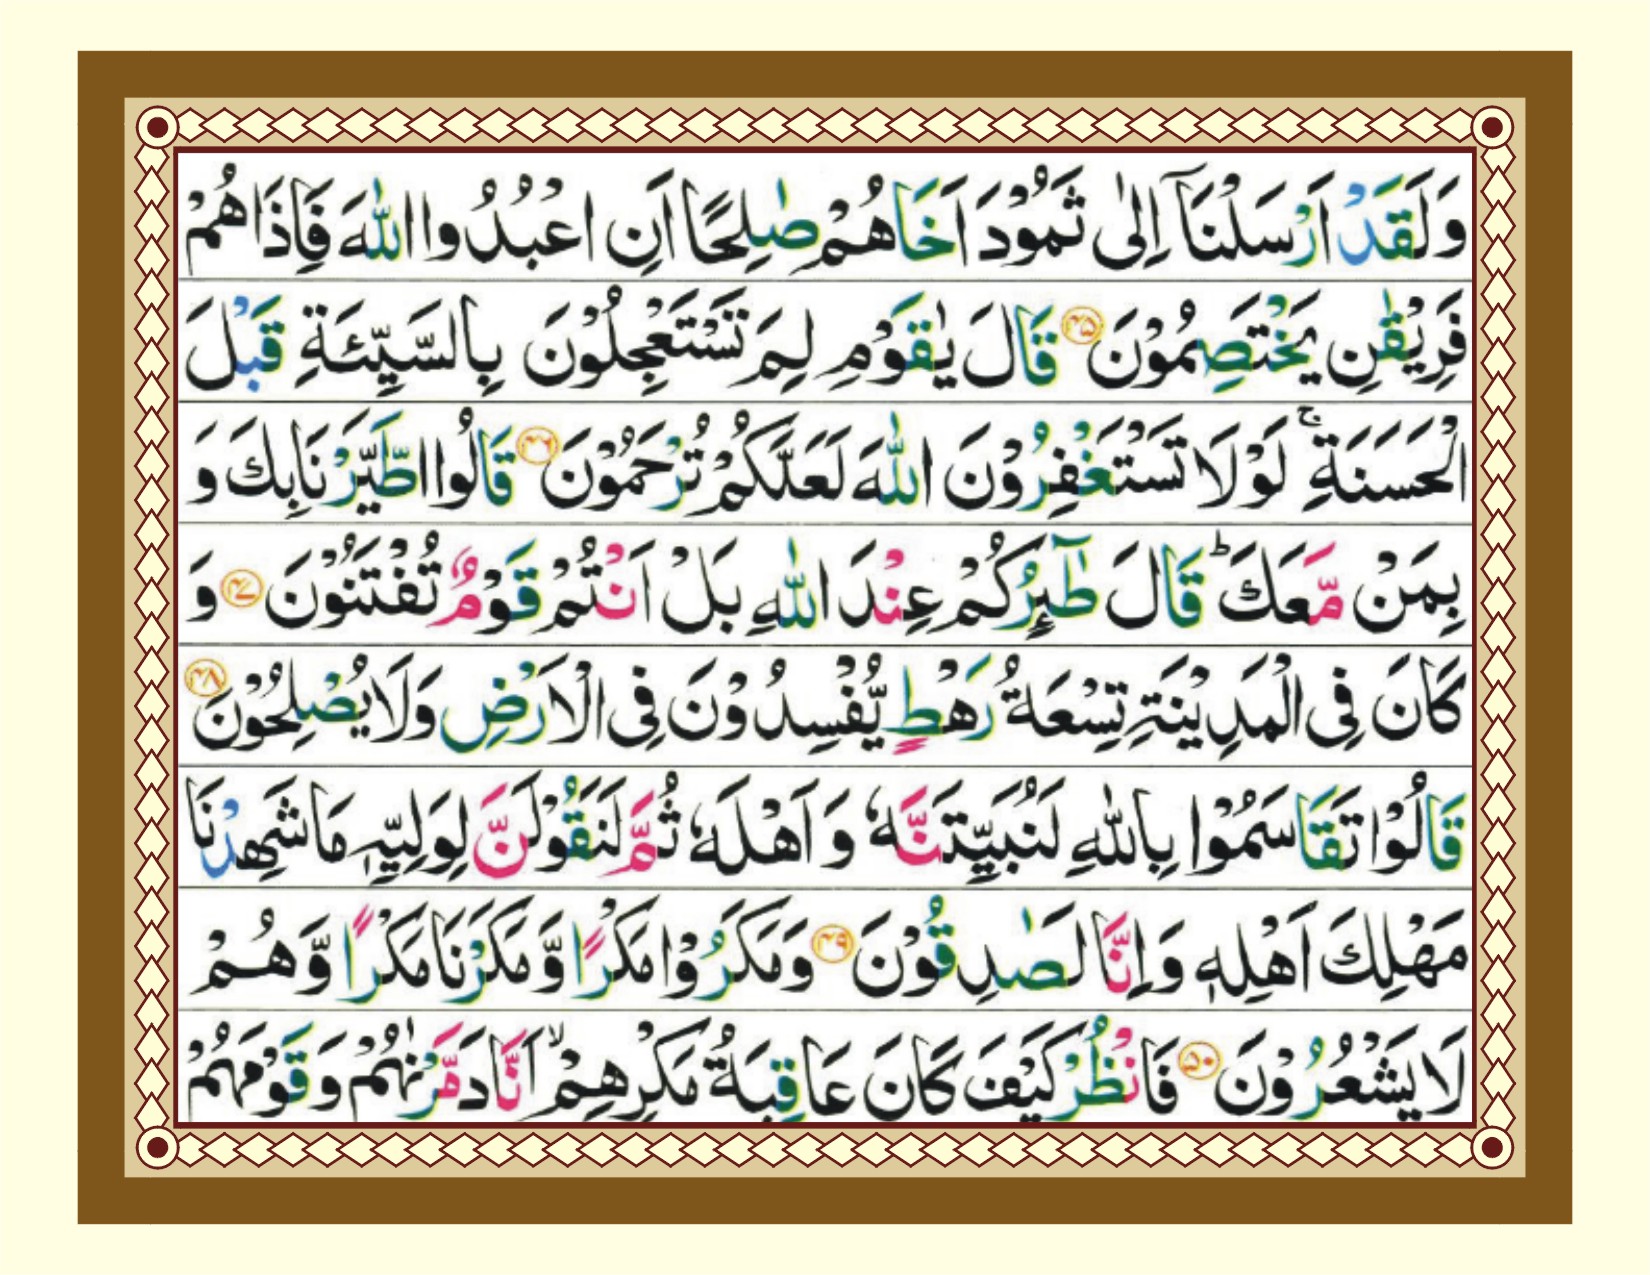 وَلَقَدْ اَرْسَلْنَآ اِلٰى ثَمُوْدَ اَخَاهُمْ صٰلِحًا اَنِ اعْبُدُوا اللّٰهَ فَاِذَا هُمْ
فَرِيْقٰنِ يَخْتَصِمُوْنَ ۝۴۵ قَالَ يٰقَوْمِ لِمَ تَسْتَعْجِلُوْنَ بِالسَّيِّئَةِ قَبْلَ
الْحَسَنَةِ ۚ لَوْلَا تَسْتَغْفِرُوْنَ اللّٰهَ لَعَلَّكُمْ تُرْحَمُوْنَ ۝۴۶ قَالُوا اطَّيَّرْنَا بِكَ وَ
بِمَنْ مَّعَكَ ؕ قَالَ طٰٓئِرُكُمْ عِنْدَ اللّٰهِ بَلْ اَنْتُمْ قَوْمٌ تُفْتَنُوْنَ ۝۴۷ وَ
كَانَ فِى الْمَدِيْنَةِ تِسْعَةُ رَهْطٍ يُّفْسِدُوْنَ فِى الْاَرْضِ وَلَا يُصْلِحُوْنَ ۝۴۸
قَالُوْا تَقَاسَمُوْا بِاللّٰهِ لَنُبَيِّتَنَّهٗ وَ اَهْلَهٗ ثُمَّ لَنَقُوْلَنَّ لِوَلِيِّهٖ مَا شَهِدْنَا
مَهْلِكَ اَهْلِهٖ وَاِنَّا لَصٰدِقُوْنَ ۝۴۹ وَمَكَرُوْا مَكْرًا وَّ مَكَرْنَا مَكْرًا وَّهُمْ
لَا يَشْعُرُوْنَ ۝۵۰ فَانْظُرْ كَيْفَ كَانَ عَاقِبَةُ مَكْرِهِمْ ۙ اَنَّا دَمَّرْنٰهُمْ وَقَوْمَهُمْ